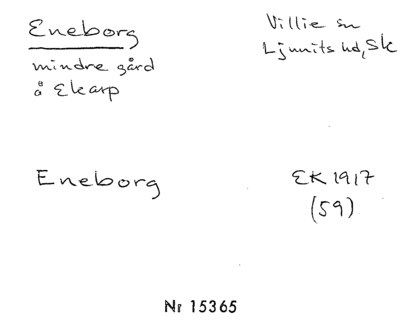 Eneborg
Villie sn
Ljunits hd, Sk
mindre gård
å Ekarp
Eneborg
EK 1917
(59)
Nr 15365